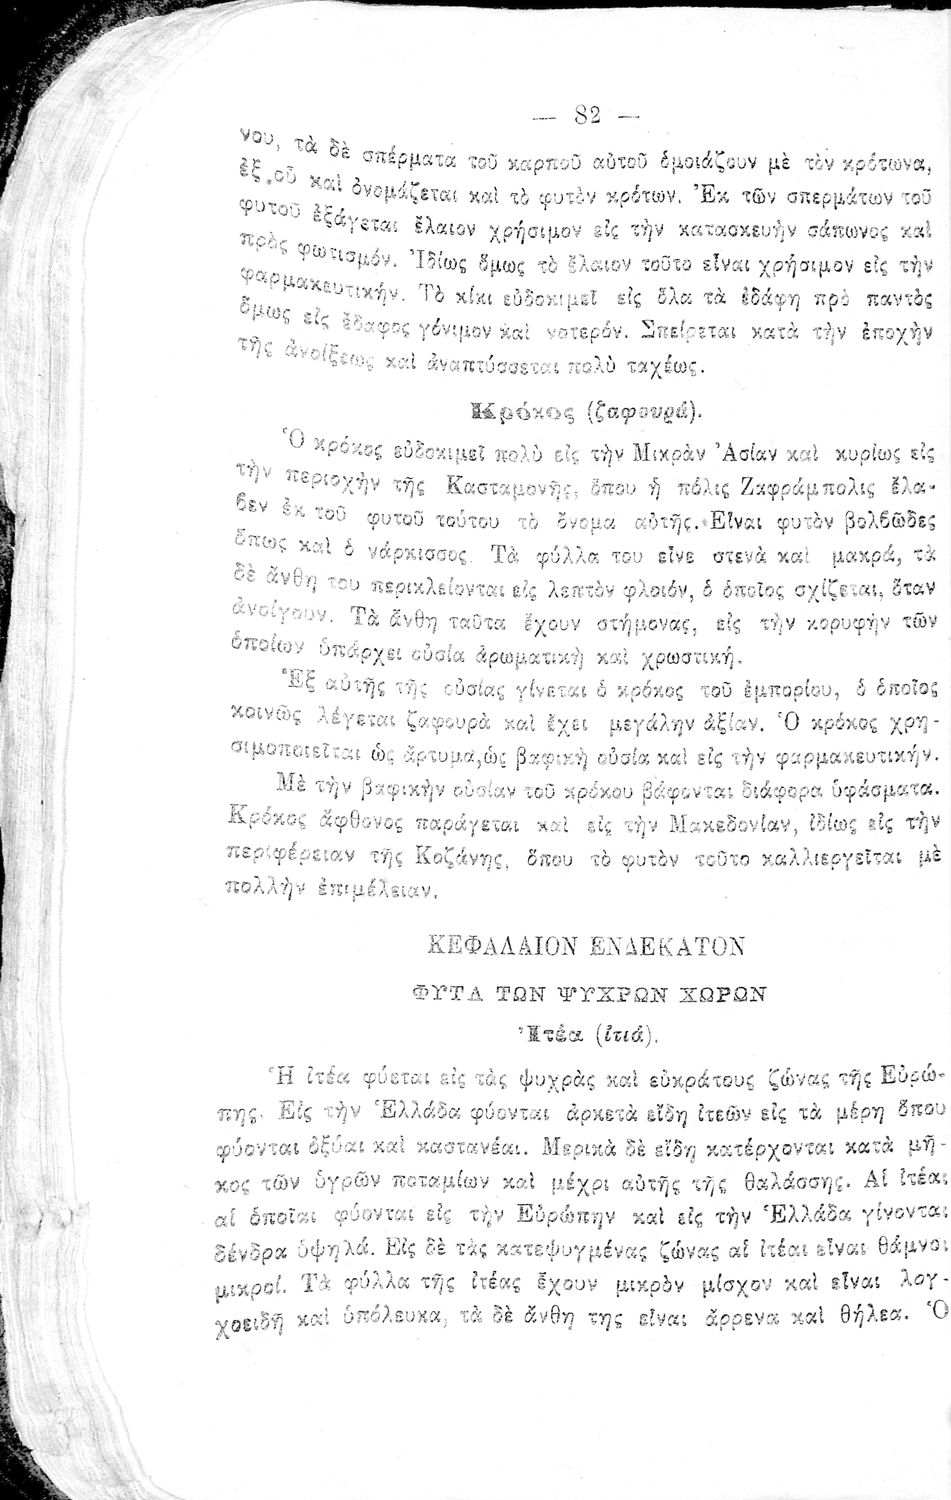 — 82 —
νου, τὰ δὲ σπέρματα τοῦ καρποῦ αὐτοῦ ὁμοιάζουν μὲ τὸν κρότωνα,
ἐξ οὗ καὶ ὀνομάζεται καὶ τὸ φυτὸν κρότων. Ἐκ τῶν σπερμάτων τοῦ
φυτοῦ ἐξάγεται ἔλαιον χρήσιμον εἰς τὴν κατασκευὴν σάπωνος καὶ
πρὸς φωτισμόν. Ἰδίως ὅμως τὸ ἔλαιον τοῦτο εἶναι χρήσιμον εἰς τὴν
φαρμακευτικήν. Τὸ κίκι εὐδοκιμεῖ εἰς ὅλα τὰ ἐδάφη πρὸ παντὸς
ὅμως εἰς ἔδαφος γόνιμον καὶ νοτερόν. Σπείρεται κατὰ τὴν ἐποχὴν
τῆς ἀνοίξεως καὶ ἀναπτύσσεται πολὺ ταχέως.
Κρόκος (ζαφουρά).
Ὁ κρόκος εὐδοκιμεῖ πολὺ εἰς τὴν Μικρὰν Ἀσίαν καὶ κυρίως εἰς
τὴν περιοχὴν τῆς Κασταμονῆς, ὅπου ἡ πόλις Ζαφράμπολις ἔλα-
βεν ἐκ τοῦ φυτοῦ τούτου τὸ ὄνομα αὐτῆς. Εἶναι φυτὸν βολβῶδες
ὅπως καὶ ὁ νάρκισσος. Τὰ φύλλα του εἶνε στενὰ καὶ μακρά, τὰ
δὲ ἄνθη του περικλείονται εἰς λεπτὸν φλοιόν, ὁ ὁποῖος σχίζεται, ὅταν
ἀνοίγουν. Τὰ ἄνθη ταῦτα ἔχουν στήμονας, εἰς τὴν κορυφὴν τῶν
ὁποίων ὑπάρχει οὐσία ἀρωματικὴ καὶ χρωστική.
Ἐξ αὐτῆς τῆς οὐσίας γίνεται ὁ κρόκος τοῦ ἐμπορίου, ὁ ὁποῖος
κοινῶς λέγεται ζαφουρὰ καὶ ἔχει μεγάλην ἀξίαν. Ὁ κρόκος χρη-
σιμοποιεῖται ὡς ἄρτυμα, ὡς βαφικὴ οὐσία καὶ εἰς τὴν φαρμακευτικήν.
Μὲ τὴν βαφικὴν οὐσίαν τοῦ κρόκου βάφονται διάφορα ὑφάσματα.
Κρόκος ἄφθονος παράγεται καὶ εἰς τὴν Μακεδονίαν, ἰδίως εἰς τὴν
περιφέρειαν τῆς Κοζάνης, ὅπου τὸ φυτὸν τοῦτο καλλιεργεῖται μὲ
πολλὴν ἐπιμέλειαν.
ΚΕΦΑΛΑΙΟΝ ΕΝΔΕΚΑΤΟΝ
ΦΥΤΑ ΤΩΝ ΨΥΧΡΩΝ ΧΩΡΩΝ
Ἰτέα (ἰτιά).
Ἡ ἰτέα φύεται εἰς τὰς ψυχρὰς καὶ εὐκράτους ζώνας τῆς Εὐρώ-
πης. Εἰς τὴν Ἑλλάδα φύονται ἀρκετὰ εἴδη ἰτεῶν εἰς τὰ μέρη ὅπου
φύονται ὀξύαι καὶ καστανέαι. Μερικὰ δὲ εἴδη κατέρχονται κατὰ μῆ-
κος τῶν ὑγρῶν ποταμίων καὶ μέχρι αὐτῆς τῆς θαλάσσης. Αἱ ἰτέαι
αἱ ὁποῖαι φύονται εἰς τὴν Εὐρώπην καὶ εἰς τὴν Ἑλλάδα γίνονται
δένδρα ὑψηλά. Εἰς δὲ τὰς κατεψυγμένας ζώνας αἱ ἰτέαι εἶναι θάμνοι
μικροί. Τὰ φύλλα τῆς ἰτέας ἔχουν μικρὸν μίσχον καὶ εἶναι λογ-
χοειδῆ καὶ ὑπόλευκα, τὰ δὲ ἄνθη της εἶναι ἄρρενα καὶ θήλεα. Ὁ